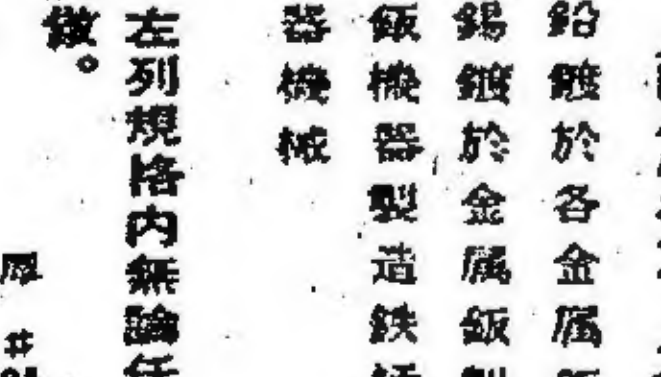 鉛鍍於各金属
錫鍍於金属鈑製
鈑機器製造鉄
器機械
左列規格内無論任
做。
厚 #